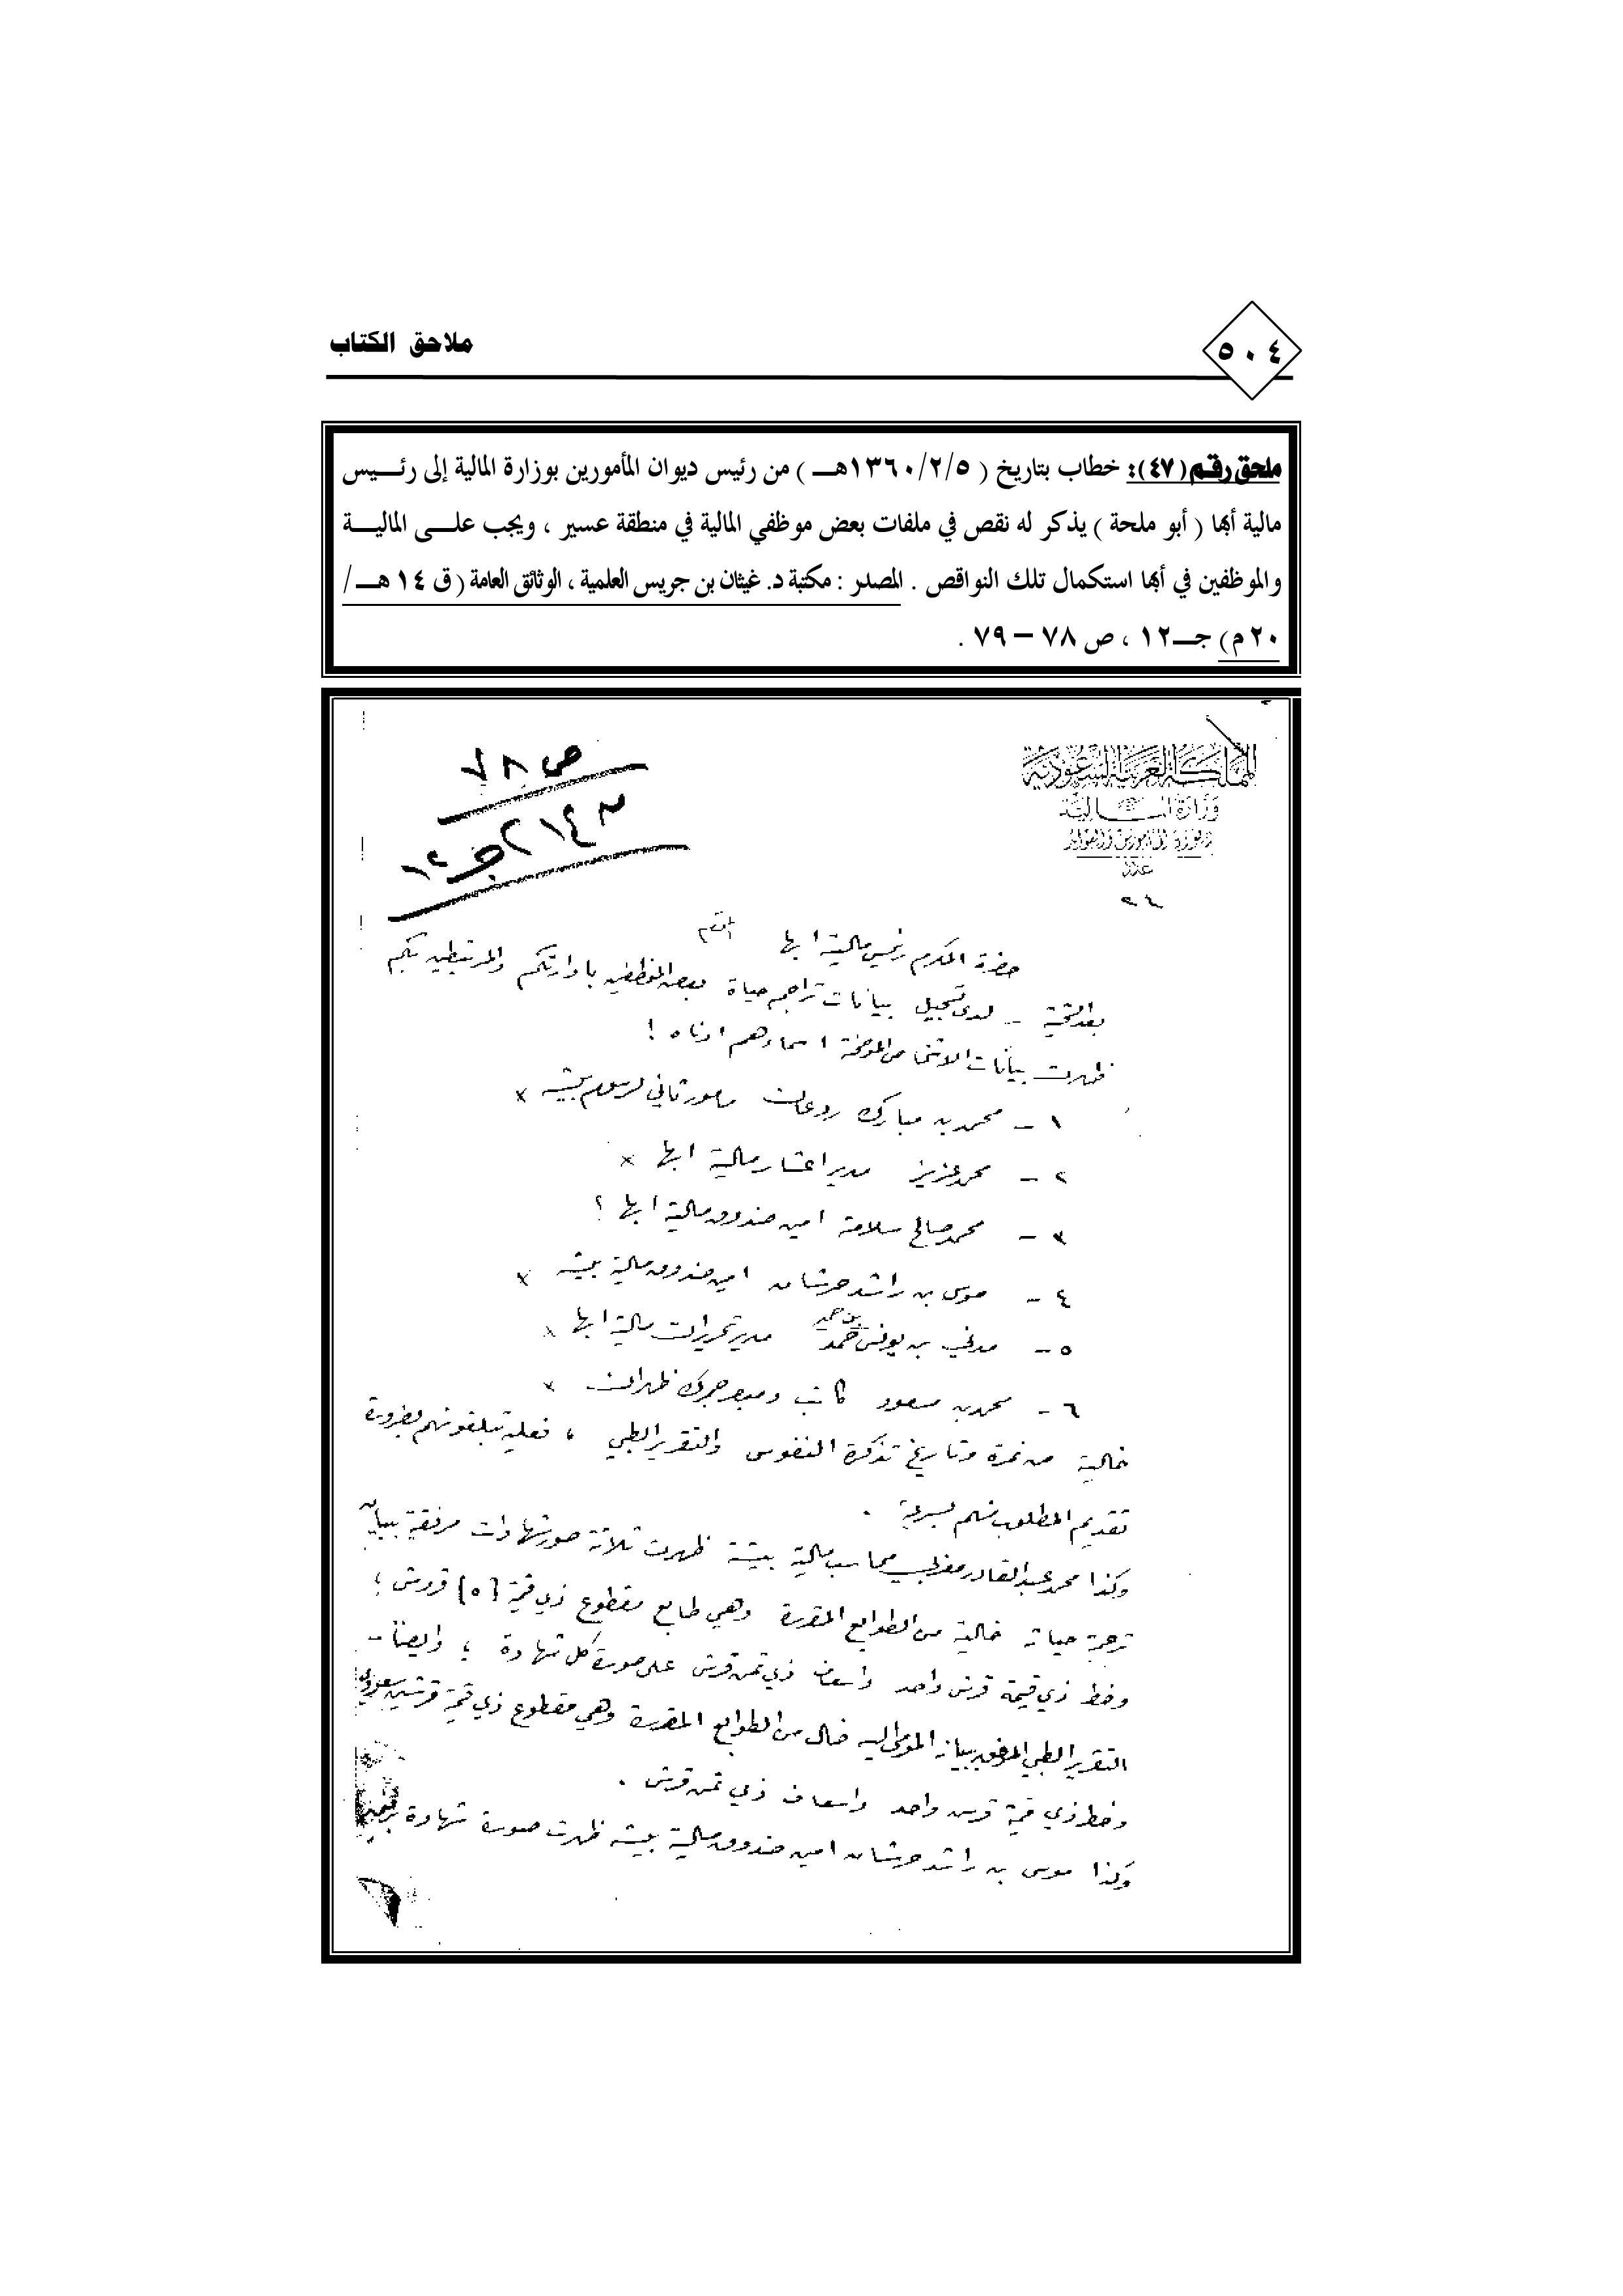 ملاحق الكتاب
٥٠٤
ملحق رقم (٤٧): خطاب بتاريخ ( ١٣٦٠/٢/٥هـ ) من رئيس ديوان المأمورين بوزارة المالية إلى رئيس
مالية أبها ( أبو ملحة ) يذكر له نقص في ملفات بعض موظفي المالية في منطقة عسير ، ويجب على المالية
والموظفين في أبها استكمال تلك النواقص . المصدر : مكتبة د. غيثان بن جريس العلمية ، الوثائق العامة ( ق ١٤ هـ /
٢٠م) جـ١٢ ، ص ٧٨ – ٧٩ .
ص ٧٨
جـ ١٢
المملكة العربية السعودية
وزارة المالية
عدد
حضرة المكرم رئيس مالية ابها
بعد التحية – لدى تسجيل بيانات تراجم حياة بعض الموظفين بادارتكم والمرتبطين بكم
ظهرت بيانات الموضحة اسماءهم ادناه !
١ – محمد بن مبارك مأمور ثاني بيشه ×
٢ – محمد عزيز مدير اعشار مالية ابها ×
٣ – محمد صالح سلامة امين صندوق مالية ابها
٤ – موسى بن راشد امين صندوق مالية بيشه ×
٥ – مدني بن يونس مدير تحريرات مالية ابها ×
٦ – محمد بن مسعود كاتب جمرك ظهران ×
خالية من نمرة وتاريخ تذكرة النفوس والتقرير الطبي ، فعليه تبلغونهم بضرورة
تقديم المطلوب منهم بسرعة .
وكذا محمد عبد القادر مغربي محاسب مالية بيشة ظهرت ثلاثة صور شهادات مرفقة ببيان
ترجمة حياته خالية من الطوابع المقررة وهي طابع مقطوع ذي قيمة (٥) قروش ؛
وخط ذي قيمة قرش واحد واسعاف ذي ثمن قرش على صورة كل شهادة ؛ وايضاً –
التقرير الطبي المرفق ببيان المومى اليه خال من الطوابع المقررة وهي مقطوع ذي قيمة قرشين سعودي
وخط ذي قيمة قرش واحد واسعاف ذي ثمن قرش .
وكذا موسى بن راشد امين صندوق مالية بيشه ظهرت صورة شهادة